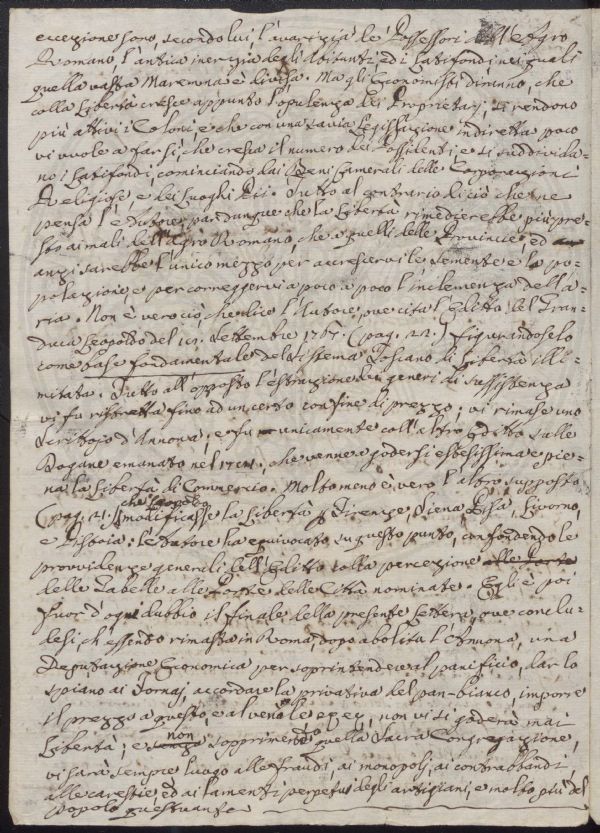 eccezione sono, secondo lui, l'avarizia de' Possessori dell'Agro
Romano, l'antica inerzia degli abitanti, ed i Latifondi ne' quali
quella vasta Maremma è divisa. Ma gli Economisti diranno, che
colla Libertà cresce appunto l'opulenza dei Proprietarj, si rendono
più attivi i Coloni, e che con una savia Legislazione indiretta poco
vi vuole a far sì, che cresca il numero dei Possidenti, e si suddivida-
no i Latifondi, cominciando dai Beni Camerali, delle Corporazioni
Religiose, e dei Luoghi Pii. Tutto al contrario di ciò che ne
pensa l'Autore, par dunque che la Libertà rimedierebbe più pre-
sto ai mali dell'Agro Romano, che a quelli delle Provincie, ed
anzi sarebbe l'unico mezzo per accrescervi le semente e la po-
polazione, e per correggervi a poco a poco l'inclemenza dell'a-
ria. Non è vero ciò che dice l'Autore, ove cita l'Editto del Gran-
duca Leopoldo del Settembre 1767. (pag. 22.) figurandoselo
come base fondamentale del sistema Toscano di Libertà illi-
mitata. Tutto all'opposto l'estrazione dei generi di sussistenza
vi fu ristretta fino ad un certo confine di prezzo; vi rimase uno
Scrittojo d'Annona; e fu unicamente coll'altro Editto sulle
Dogane emanato nel che venne a godersi estesissima e pie-
na la Libertà di Commercio. Molto meno è vero l'altro supposto
che Leopoldo
(pag. 21.) modificasse la Libertà a Firenze, Siena, Pisa, Livorno,
e Pistoia: l'Autore ha equivocato su questo punto, confondendo le
provvidenze generali dell'Editto colla percezione alle Porte
delle Gabelle alle Porte delle Città nominate. Egli è poi
fuor d'ogni dubbio il finale della presente Lettera, ove conclu-
desi, ch'essendo rimasta in Roma, dopo abolita l'Annona, una
Deputazione Economica per soprintendere al panificio, dar lo
spiano ai Fornaj, accordare la privativa del pan-bianco, imporre
il prezzo a questo, e al venale non vi si goderà mai
non
Libertà; e senza sopprimendo quella Sacra Congregazione,
vi sarà sempre luogo alle fraudi, ai monopolj, ai contrabbandi
alle carestie, ed ai lamenti perpetui degli artigiani, e molto più del
popolo questuante